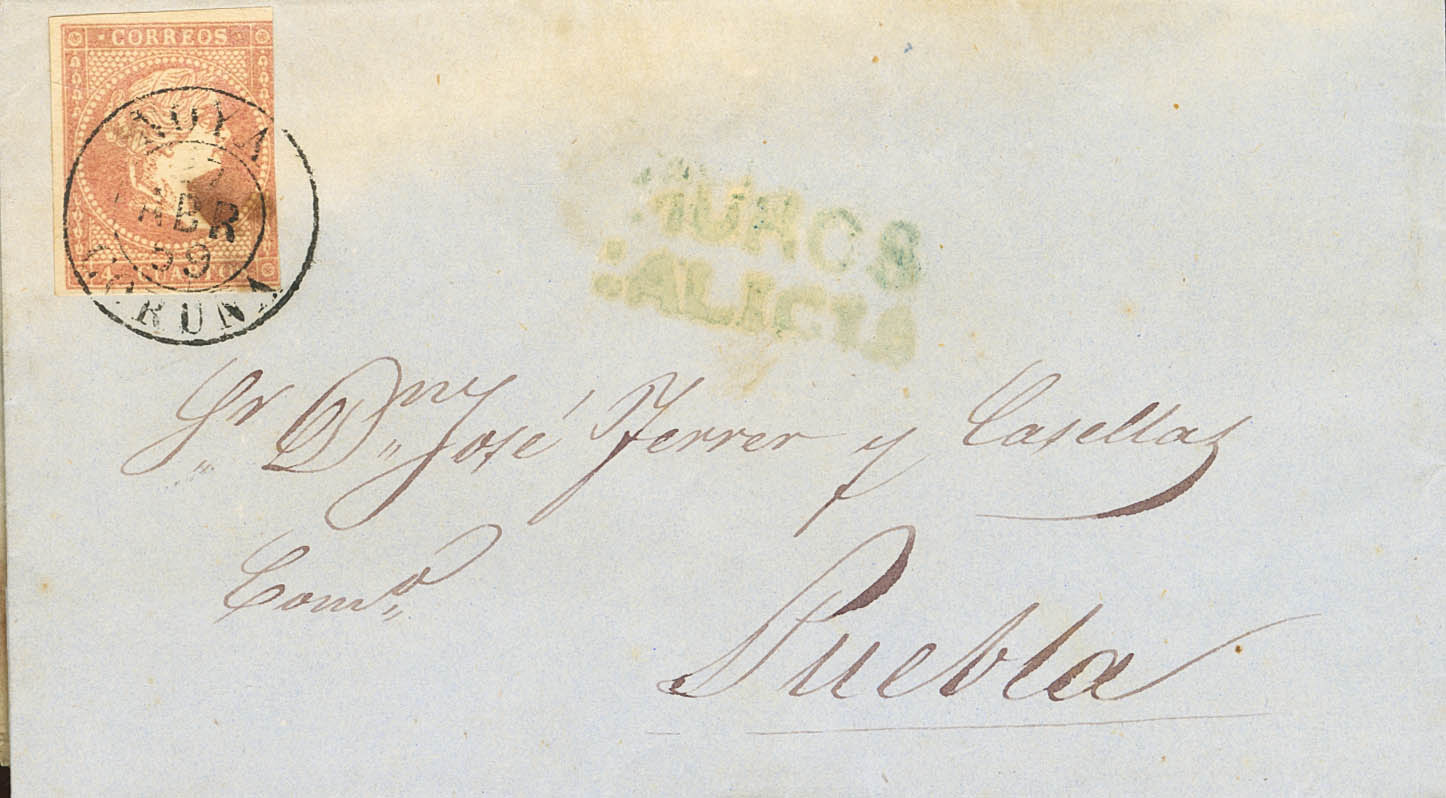 CORREOS
NOYA
27
ABR
59
CORUÑA
MUROS
GALICIA
Sr. Dn. José Ferrer y Casellas
Como.
Puebla